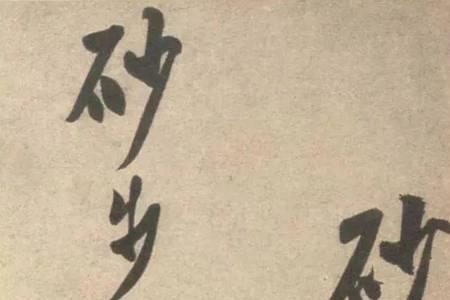 砂
砂步